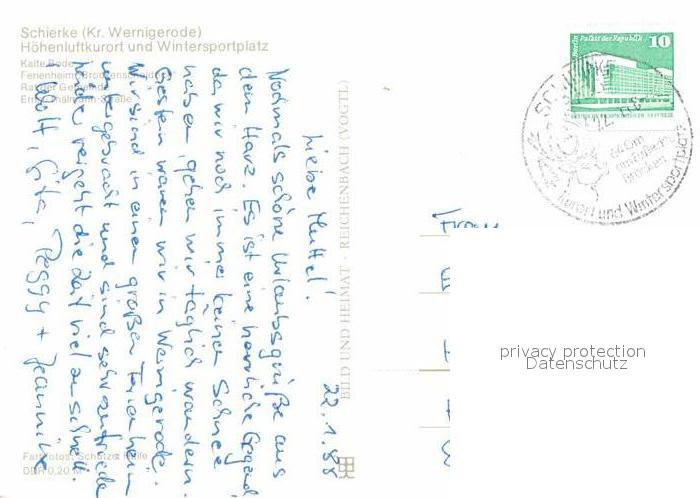 Schierke (Kr. Wernigerode)
Höhenluftkurort und Wintersportplatz
Kalte Bode
Ferienheim
Rat der Gemeinde
22.1.88
Liebe Mutti!
Nochmals schöne Urlaubsgrüße aus
dem Harz. Es ist eine herrliche Gegend
da wir noch immer keinen Schnee
haben, gehen wir täglich wandern.
Gestern waren wir in Wernigerode.
Wir sind in einem großen Ferienheim
untergebracht und sind sehr zufrieden
Leider vergeht die Zeit viel zu schnell.
Wolf, Gita, Peggy + Jeannine
Farbfotos: Schütze, Halle
DDR 0,20 M
BILD UND HEIMAT · REICHENBACH (VOGTL)
Berlin Palast der Republik
10
SCHIERKE
Brocken
Kurort und Wintersportplatz
Frau
privacy protection
Datenschutz